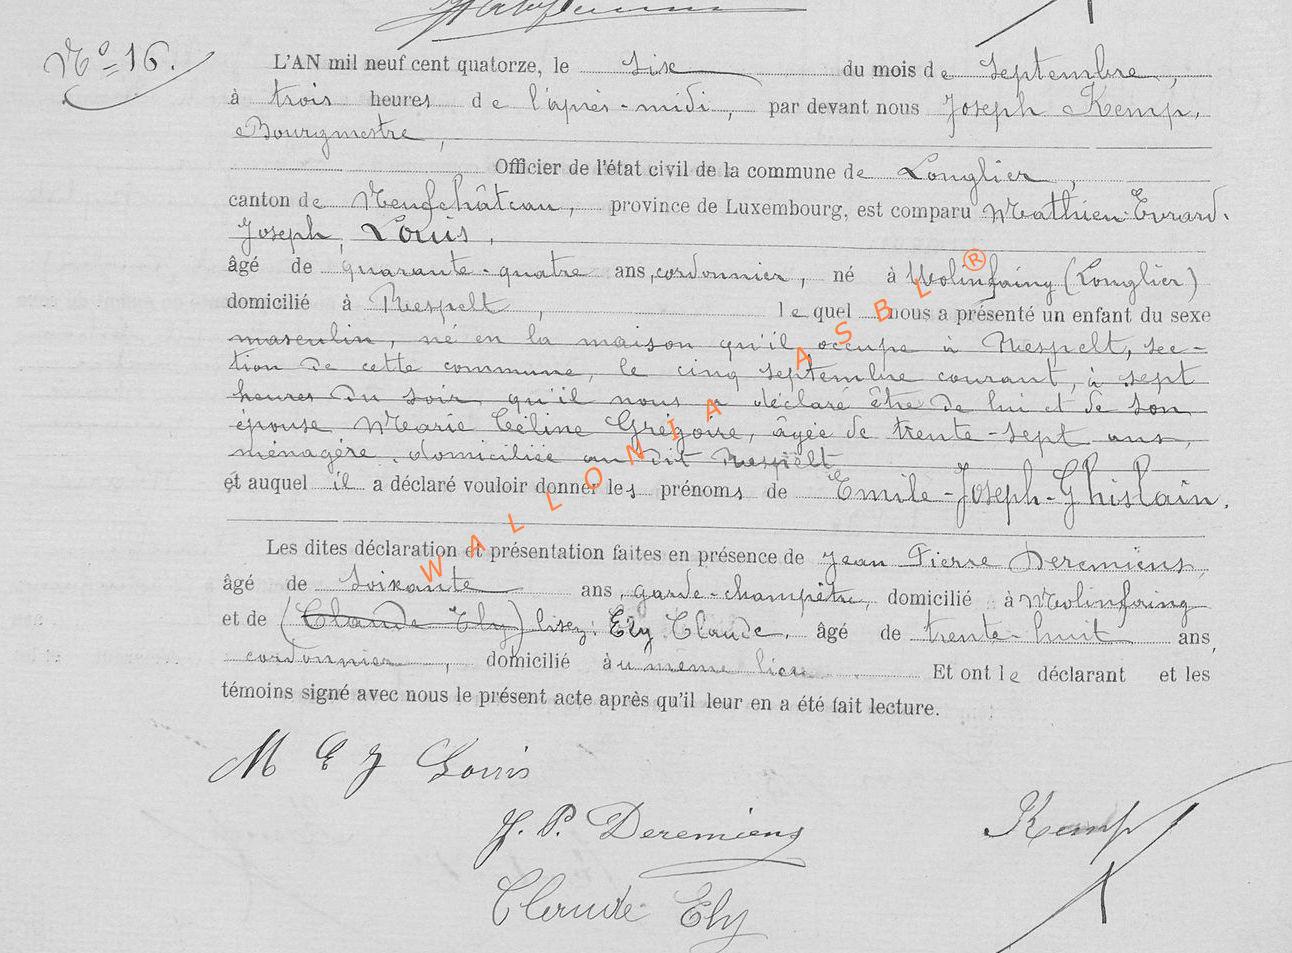 N° 16.
L'AN mil neuf cent quatorze, le six du mois de septembre,
à trois heures de l'après-midi, par devant nous Joseph Kemp,
Bourgmestre,
Officier de l'état civil de la commune de Longlier,
canton de Neufchâteau, province de Luxembourg, est comparu Mathieu-Evrard-
Joseph, Louis,
âgé de quarante-quatre ans, cordonnier, né à Molinfaing (Longlier)
domicilié à Respelt, lequel nous a présenté un enfant du sexe
masculin, né en la maison qu'il occupe à Respelt, sec-
tion de cette commune, le cinq septembre courant, à sept
heures du soir, qu'il nous a déclaré être de lui et de son
épouse Marie Céline Grégoire, âgée de trente-sept ans,
ménagère, domiciliée au dit Respelt
et auquel il a déclaré vouloir donner les prénoms de Emile-Joseph-Ghislain.
Les dites déclaration et présentation faites en présence de Jean Pierre Deremiens,
âgé de soixante ans, garde-champêtre, domicilié à Molinfaing
et de (Claude Ely) lisez: Ely Claude, âgé de trente-huit ans,
cordonnier, domicilié au même lieu. Et ont le déclarant et les
témoins signé avec nous le présent acte après qu'il leur en a été fait lecture.
M E J Louis
J. P. Deremiens
Kemp
Claude Ely
WALLONIA ASBL ®